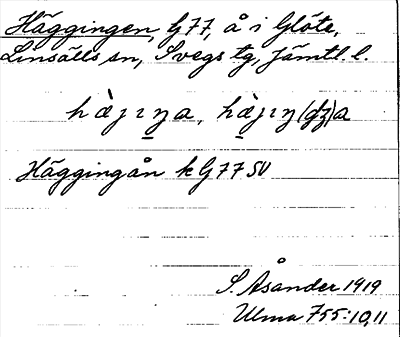 Häggingen, G77, å i Glöte,
Linsälls sn, Svegs tg, Jämtl. l.
hæ̀jɪŋa, hæ̀jɪŋ(gʒ)a
Häggingån k G77 SV
S. Åsander 1919
Ulma 755:10,11